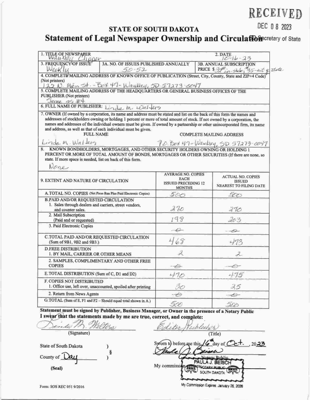 RECEIVED
DEC 08 2023
STATE OF SOUTH DAKOTA
Statement of Legal Newspaper Ownership and Circulation
Secretary of State
1. TITLE OF NEWSPAPER
2. DATE
10-16-23
1. FREQUENCY OF ISSUE
Weekly
3A. NO. OF ISSUES PUBLISHED ANNUALLY
50-52
3B. ANNUAL SUBSCRIPTION
PRICE $
4. COMPLETE MAILING ADDRESS OF KNOWN OFFICE OF PUBLICATION (Street, City, County, State and ZIP+4 Code)
(Not printers)
5. COMPLETE MAILING ADDRESS OF THE HEADQUARTERS OR GENERAL BUSINESS OFFICES OF THE
PUBLISHER (Not printers)
Same as #4
6. FULL NAME OF PUBLISHER:
Linda M. Walters
7. OWNER (If owned by a corporation, its name and address must be stated and list on the back of this form the names and
addresses of stockholders owning or holding 1 percent or more of total amount of stock. If not owned by a corporation, the
names and addresses of the individual owners must be given. If owned by a partnership or other unincorporated firm, its name
and address, as well as that of each individual must be given.
FULL NAME
COMPLETE MAILING ADDRESS
Linda M. Walters
8. KNOWN BONDHOLDERS, MORTGAGES, AND OTHER SECURITY HOLDERS OWNING OR HOLDING 1
PERCENT OR MORE OF TOTAL AMOUNT OF BONDS, MORTGAGES OR OTHER SECURITIES (If there are none, so
state. If more space is needed, list on back of this form.
None
9. EXTENT AND NATURE OF CIRCULATION
AVERAGE NO. COPIES
EACH
ISSUES PRECEDING 12
MONTHS
ACTUAL NO. COPIES
ISSUED
NEAREST TO FILING DATE
A. TOTAL NO. COPIES
500
500
B. PAID AND/OR REQUESTED CIRCULATION
1. Sales through dealers and carriers, street vendors,
and counter sales.
270
270
2. Mail Subscription
(Paid and or requested)
198
203
3. Paid Electronic Copies
C. TOTAL PAID AND/OR REQUESTED CIRCULATION
(Sum of 9B1, 9B2 and 9B3)
468
473
D. FREE DISTRIBUTION
1. BY MAIL, CARRIER OR OTHER MEANS
2
2
2. SAMPLES, COMPLIMENTARY AND OTHER FREE
COPIES
E. TOTAL DISTRIBUTION (Sum of C, D1 and D2)
470
475
F. COPIES NOT DISTRIBUTED
1. Office use, left over, unaccounted, spoiled after printing
30
25
2. Return from News Agents
G. TOTAL (Sum of E, F1 and F2 - Should equal total shown in A)
500
500
Statement must be signed by Publisher, Business Manager, or Owner in the presence of a Notary Public
I swear that the statements made by me are true, correct, and complete:
(Signature)
(Title)
State of South Dakota
County of Day
(Seal)
Sworn to before me this 16 day of Oct. 2023
My commission
PAULA J. BERSCH
SOUTH DAKOTA
My Commission Expires January 26, 2028